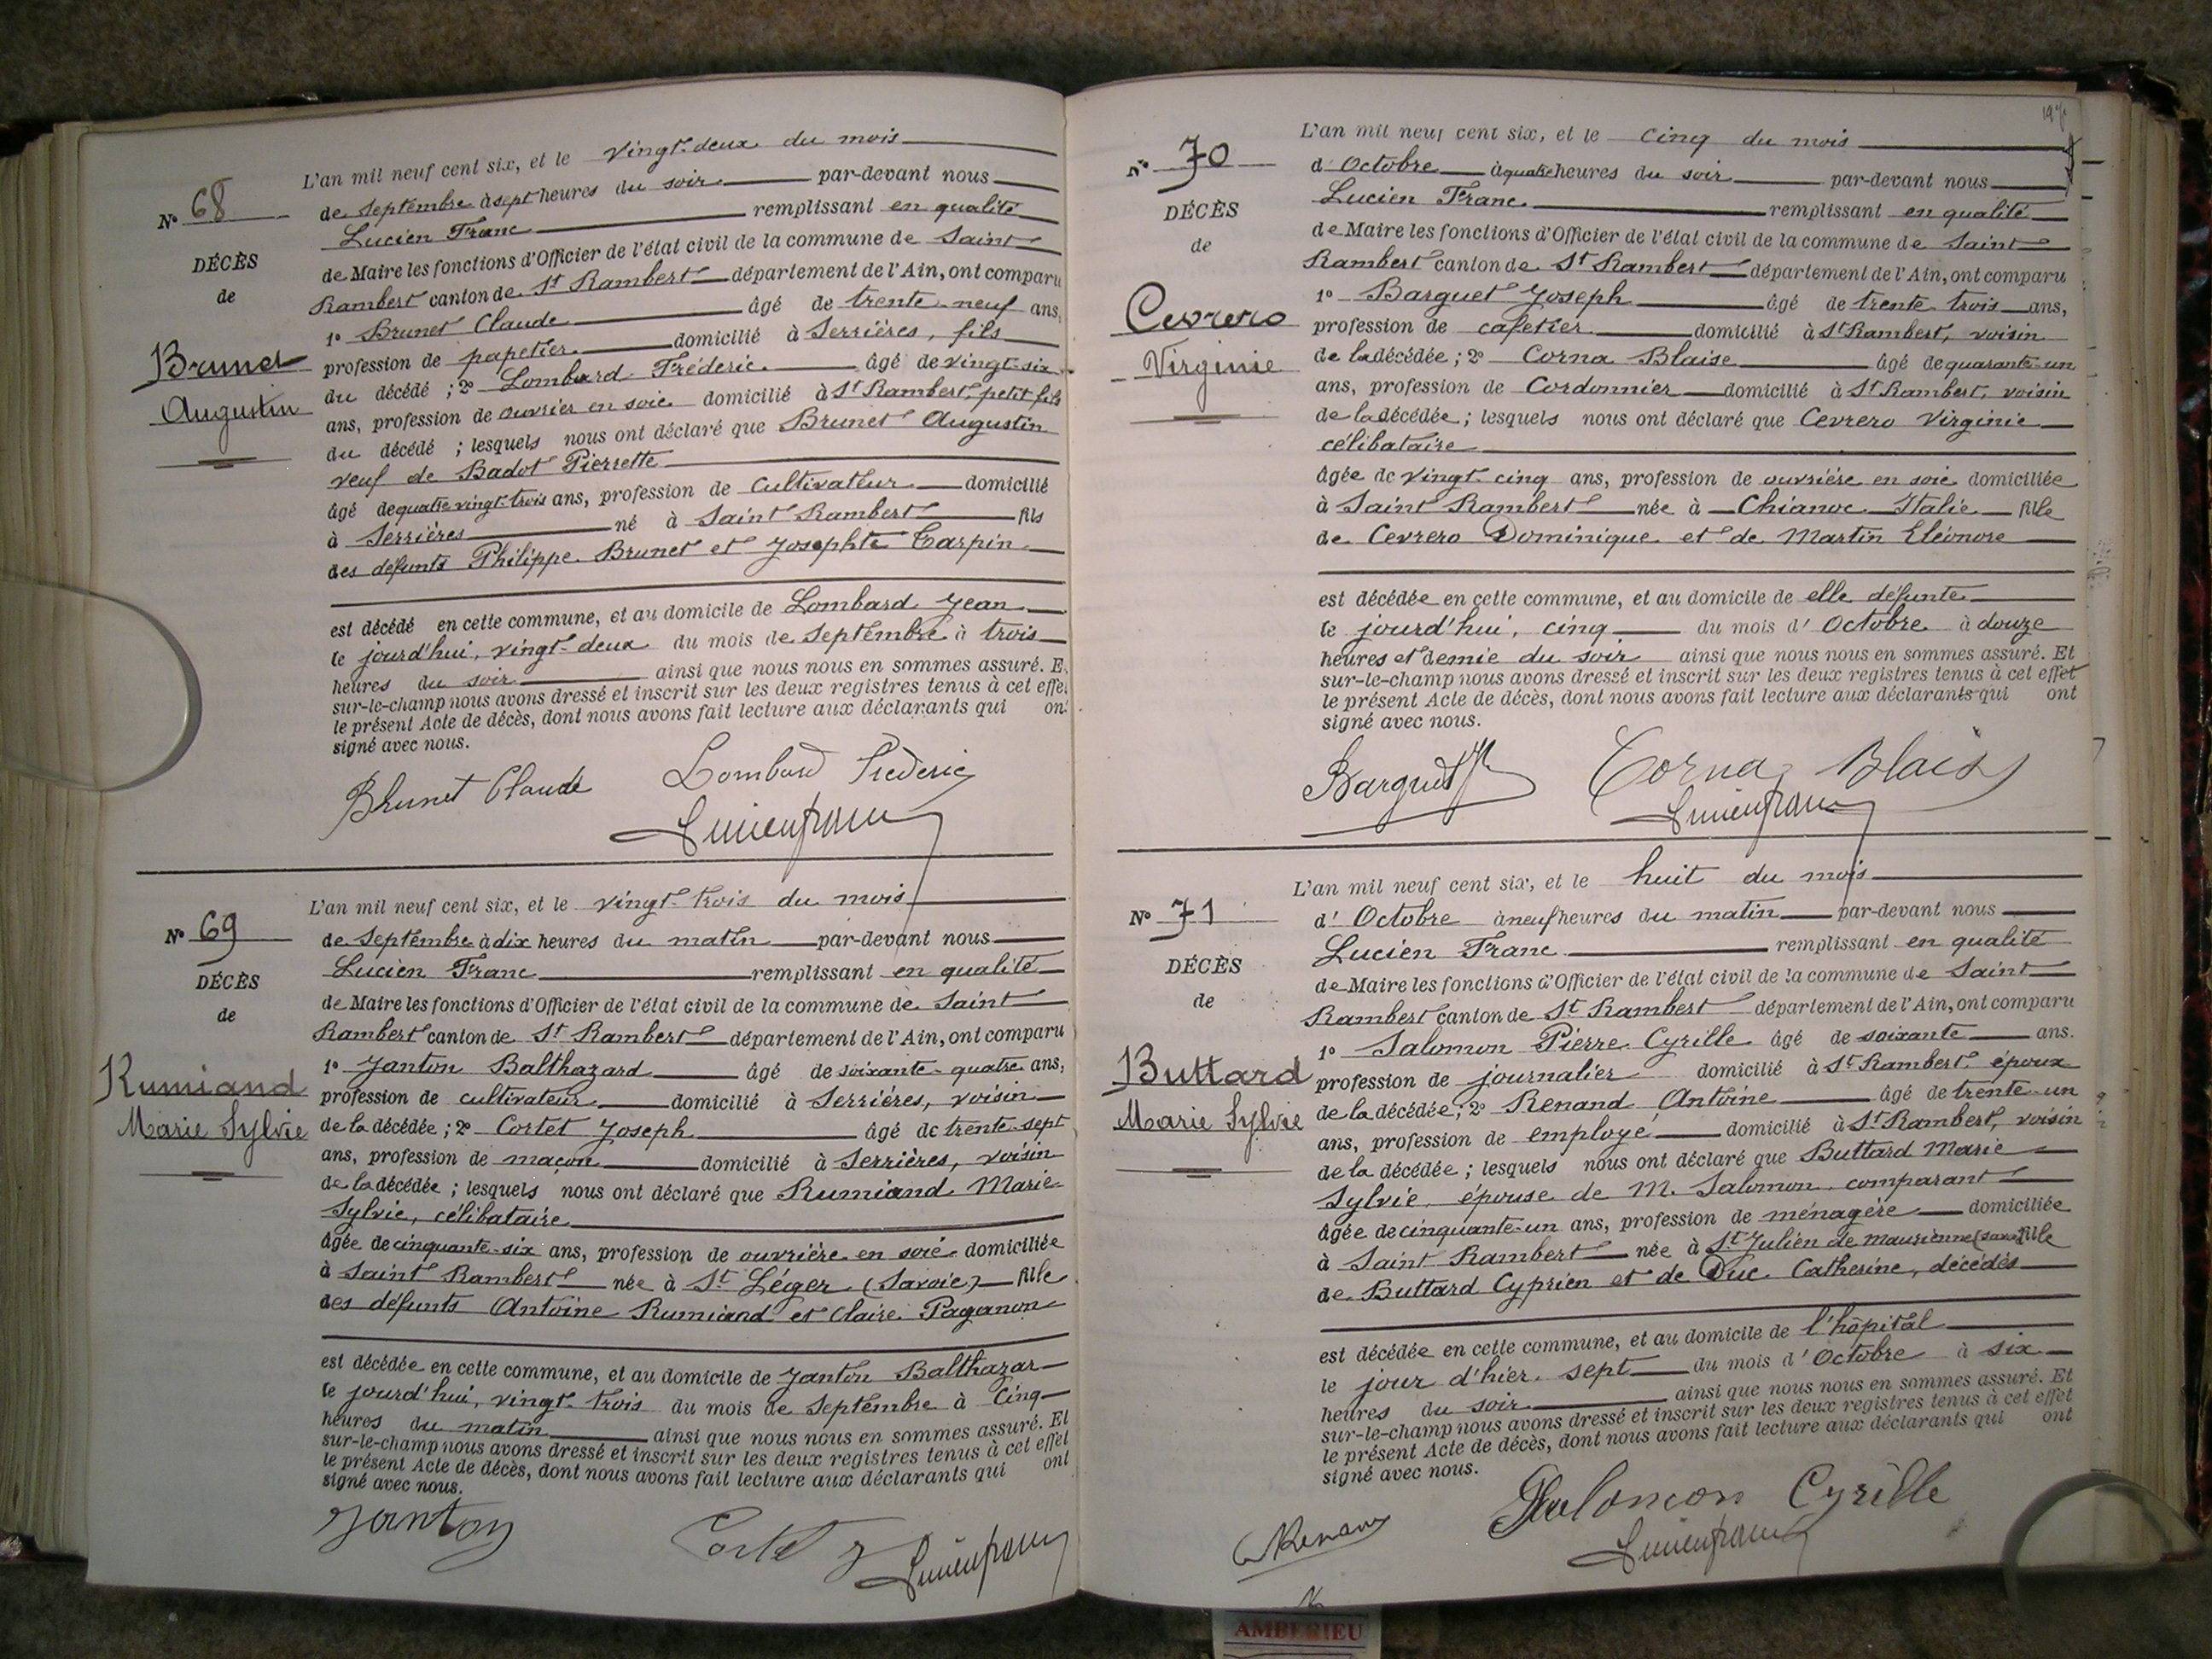 N° 68
DÉCÈS
de
Brunet
Augustin
L'an mil neuf cent six, et le vingt-deux du mois
de Septembre à sept heures du soir par-devant nous
Lucien Franc remplissant en qualité
de Maire les fonctions d'Officier de l'état civil de la commune de Saint
Rambert canton de St Rambert département de l'Ain, ont comparu
1° Brunet Claude âgé de trente-neuf ans,
profession de papetier domicilié à Serrières, fils
du décédé ; 2° Lombard Fréderic âgé de vingt-six
ans, profession de ouvrier en soie domicilié à St Rambert, petit fils
du décédé ; lesquels nous ont déclaré que Brunet Augustin
veuf de Badot Pierrette
âgé de quatre vingt-trois ans, profession de Cultivateur domicilié
à Serrières né à Saint Rambert fils
des défunts Philippe Brunet et Josephte Tarpin
est décédé en cette commune, et au domicile de Lombard Jean
le jourd'hui, vingt-deux du mois de Septembre à trois
heures du soir ainsi que nous nous en sommes assuré. E
sur-le-champ nous avons dressé et inscrit sur les deux registres tenus à cet effe
le présent Acte de décès, dont nous avons fait lecture aux déclarants qui on
signé avec nous.
Brunet Claude Lombard Fréderic
Lucien Franc
N° 69
DÉCÈS
de
Rumiand
Marie Sylvie
L'an mil neuf cent six, et le vingt-trois du mois
de Septembre à dix heures du matin par-devant nous
Lucien Franc remplissant en qualité
de Maire les fonctions d'Officier de l'état civil de la commune de Saint
Rambert canton de St Rambert département de l'Ain, ont comparu
1° Janton Balthazard âgé de soixante-quatre ans,
profession de cultivateur domicilié à Serrières, voisin
de la décédée ; 2° Cortet Joseph âgé de trente-sept
ans, profession de maçon domicilié à Serrières, voisin
de la décédée ; lesquels nous ont déclaré que Rumiand Marie
Sylvie, célibataire
âgée de cinquante-six ans, profession de ouvrière en soie domiciliée
à Saint Rambert née à St Léger (Savoie) fille
des défunts Antoine Rumiand et Claire Paganon
est décédée en cette commune, et au domicile de Janton Balthazar
le jourd'hui, vingt-trois du mois de Septembre à Cinq
heures du matin ainsi que nous nous en sommes assuré. Et
sur-le-champ nous avons dressé et inscrit sur les deux registres tenus à cet effet
le présent Acte de décès, dont nous avons fait lecture aux déclarants qui ont
signé avec nous.
Janton Cortet J
Lucien Franc
N° 70
DÉCÈS
de
Cevrero
Virginie
L'an mil neuf cent six, et le cinq du mois
d'Octobre à quatre heures du soir par-devant nous
Lucien Franc remplissant en qualité
de Maire les fonctions d'Officier de l'état civil de la commune de Saint
Rambert canton de St Rambert département de l'Ain, ont comparu
1° Barguet Joseph âgé de trente trois ans,
profession de cafetier domicilié à St Rambert, voisin
de la décédée ; 2° Corna Blaise âgé de quarante-un
ans, profession de Cordonnier domicilié à St Rambert, voisin
de la décédée ; lesquels nous ont déclaré que Cevrero Virginie
célibataire
âgée de vingt-cinq ans, profession de ouvrière en soie domiciliée
à Saint Rambert née à Chianoc Italie fille
de Cevrero Dominique et de Martin Eléonore
est décédée en cette commune, et au domicile de elle défunte
le jourd'hui, cinq du mois d'Octobre à douze
heures et demie du soir ainsi que nous nous en sommes assuré. Et
sur-le-champ nous avons dressé et inscrit sur les deux registres tenus à cet effet
le présent Acte de décès, dont nous avons fait lecture aux déclarants qui ont
signé avec nous.
Barguet J Corna Blais
Lucien Franc
N° 71
DÉCÈS
de
Buttard
Marie Sylvie
L'an mil neuf cent six, et le huit du mois
d'Octobre à neuf heures du matin par-devant nous
Lucien Franc remplissant en qualité
de Maire les fonctions d'Officier de l'état civil de la commune de Saint
Rambert canton de St Rambert département de l'Ain, ont comparu
1° Salomon Pierre Cyrille âgé de soixante ans.
profession de journalier domicilié à St Rambert, époux
de la décédée ; 2° Renand Antoine âgé de trente-un
ans, profession de employé domicilié à St Rambert, voisin
de la décédée ; lesquels nous ont déclaré que Buttard Marie
Sylvie, épouse de M. Salomon, comparant
âgée de cinquante-un ans, profession de ménagère domiciliée
à Saint Rambert née à St Julien de Maurienne (Savoie) fille
de Buttard Cyprien et de Duc Catherine, décédés
est décédée en cette commune, et au domicile de l'hôpital
le jour d'hier, sept du mois d'Octobre à six
heures du soir ainsi que nous nous en sommes assuré. Et
sur-le-champ nous avons dressé et inscrit sur les deux registres tenus à cet effet
le présent Acte de décès, dont nous avons fait lecture aux déclarants qui ont
signé avec nous.
Salomon Cyrille
Renand
Lucien Franc
AMBERIEU